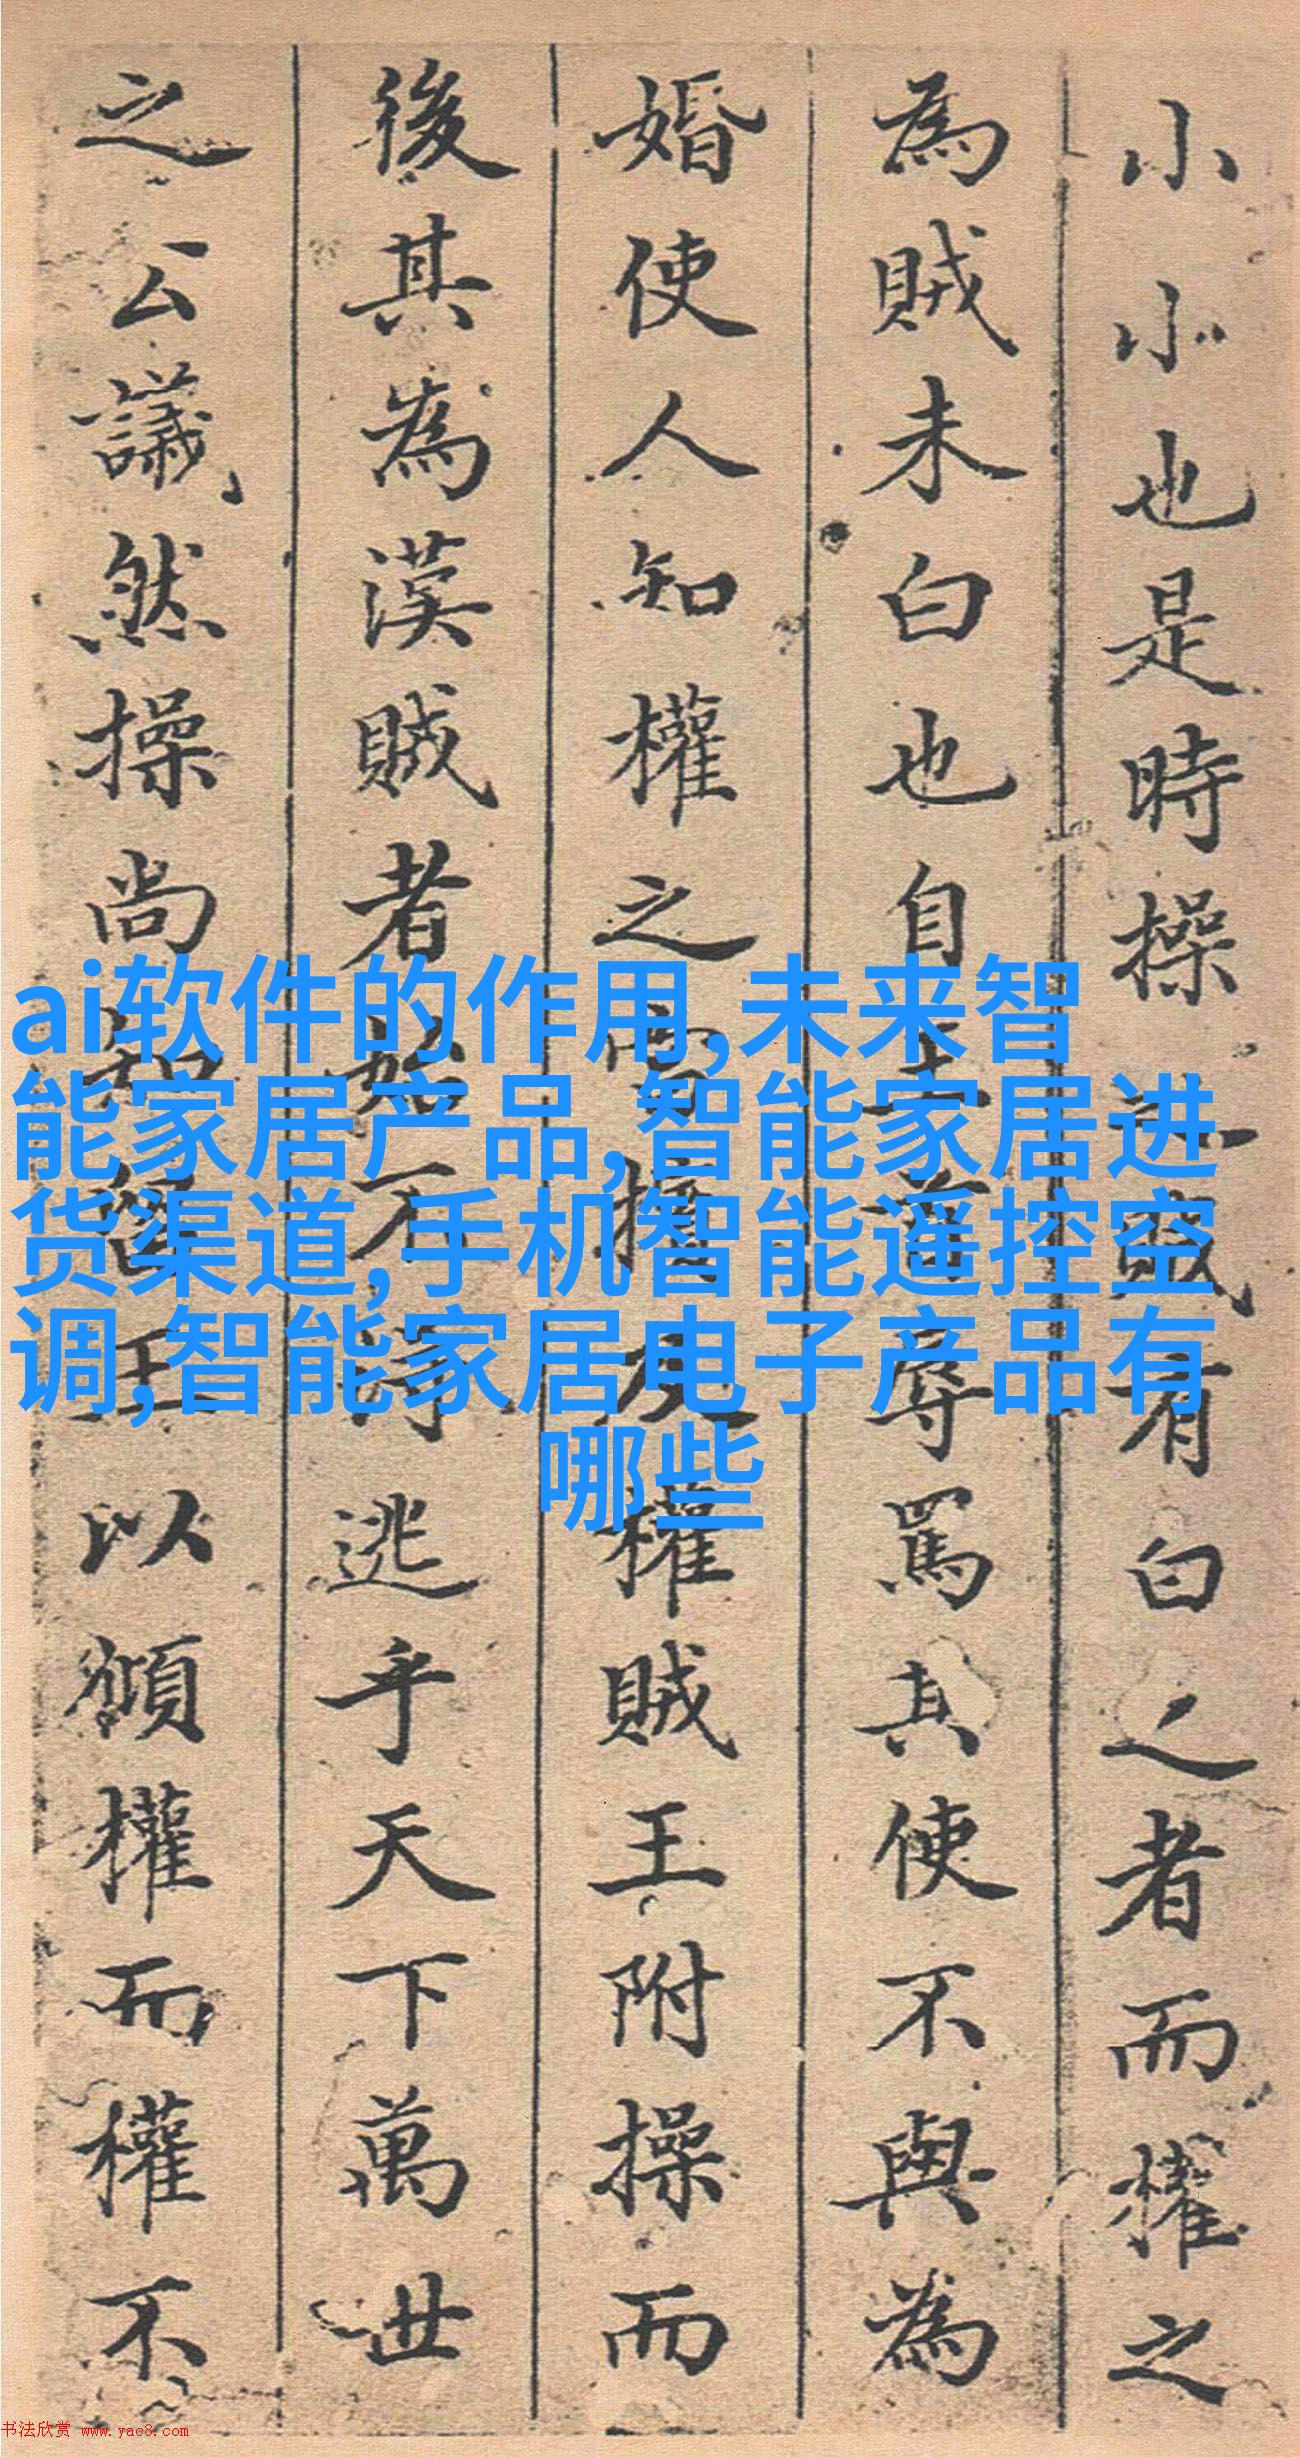 小小也是時操賊有白之者而權之
為賊未白也自辱罵其使不與為
婚使人知權之權賊王附操而
後其為漢賊者始不得逃乎天下萬世
之公議然操尚知以權而權不
ai软件的作用,未来智
能家居产品,智能家居进
货渠道,手机智能遥控空
调,智能家居电子产品有
哪些
书法欣赏 www.yac8.com